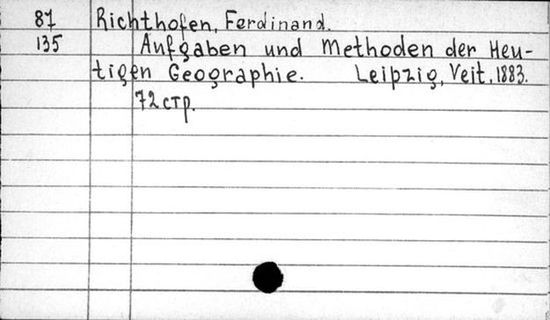 87 Richthofen, Ferdinand.
135 Aufgaben und Methoden der Heu-
tigen Geographie. Leipzig, Veit, 1883.
72 стр.